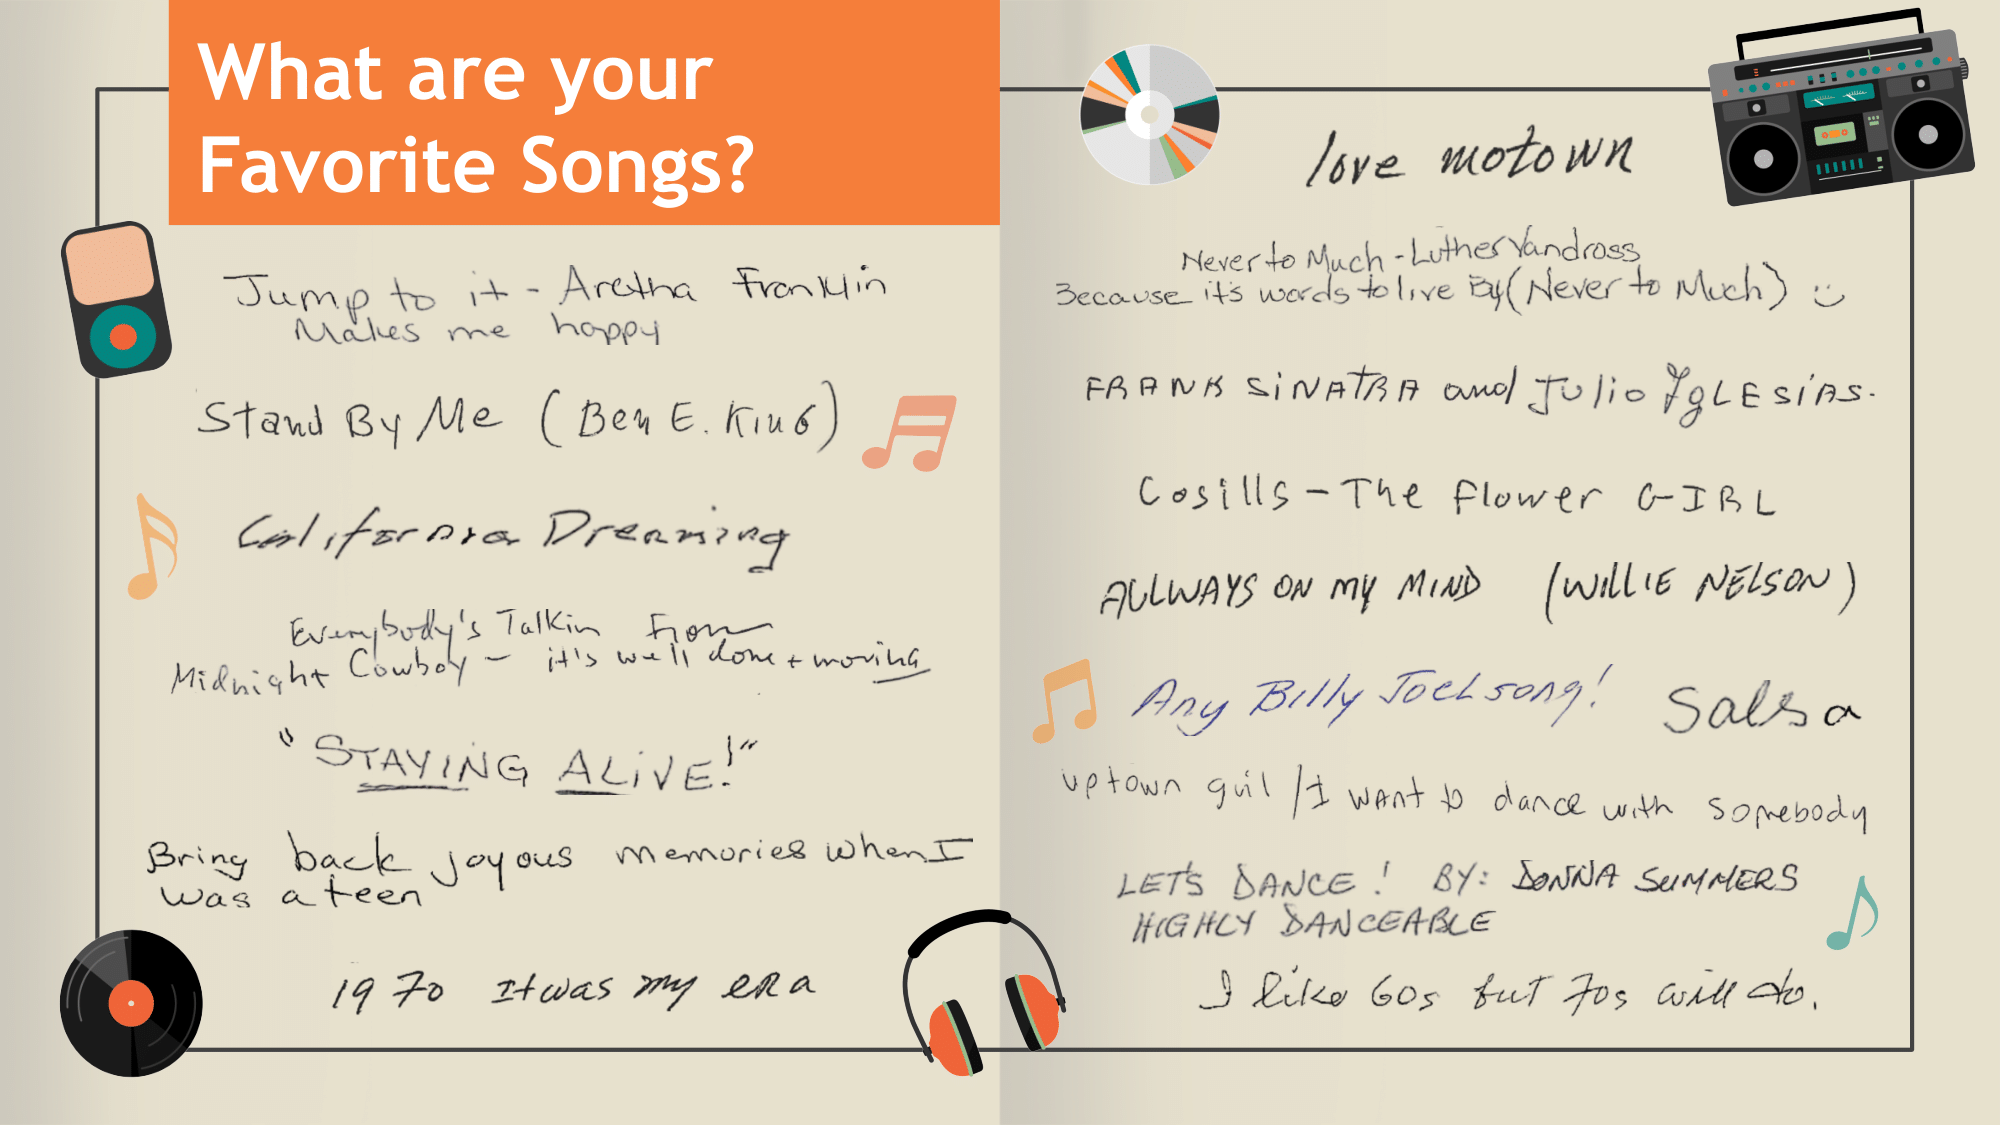 What are your
Favorite Songs?
Jump to it - Aretha Franklin
Makes me happy
Stand By Me (Ben E. King)
California Dreaming
Everybody's Talkin from
Midnight Cowboy - it's well done + moving
"STAYING ALIVE!"
Bring back joyous memories when I
was a teen
1970 It was my era
love motown
Never to Much - Luther Vandross
Because it's words to live By (Never to Much) :)
FRANK SiNATRA and Julio YgLESiAS.
Cosills - The Flower GIRL
ALLWAYS ON MY MIND (WILLIE NELSON)
Any Billy Joel song!
Salsa
uptown guil / I want to dance with somebody
LET'S DANCE! BY: DONNA SUMMERS
HIGHLY DANCEABLE
I like 60s but 70s will do.